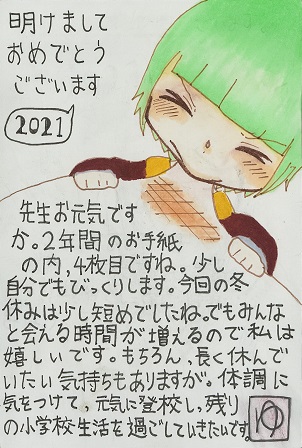 明けまして
おめでとう
ございます
2021
先生お元気です
か。2年間のお手紙
の内,4枚目ですね。少し
自分でもびっくりします。今回の冬
休みは少し短めでしたね。でもみんな
と会える時間が増えるので私は
嬉しいです。もちろん,長く休んで
いたい気持ちもありますが。体調に
気をつけて,元気に登校し,残り
の小学校生活を過ごしていきたいです。
ゆ